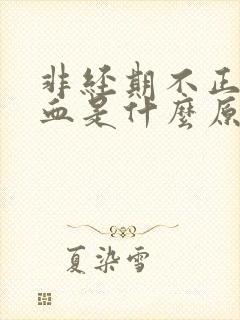 非經期不正
血是什麼原
夏染雪